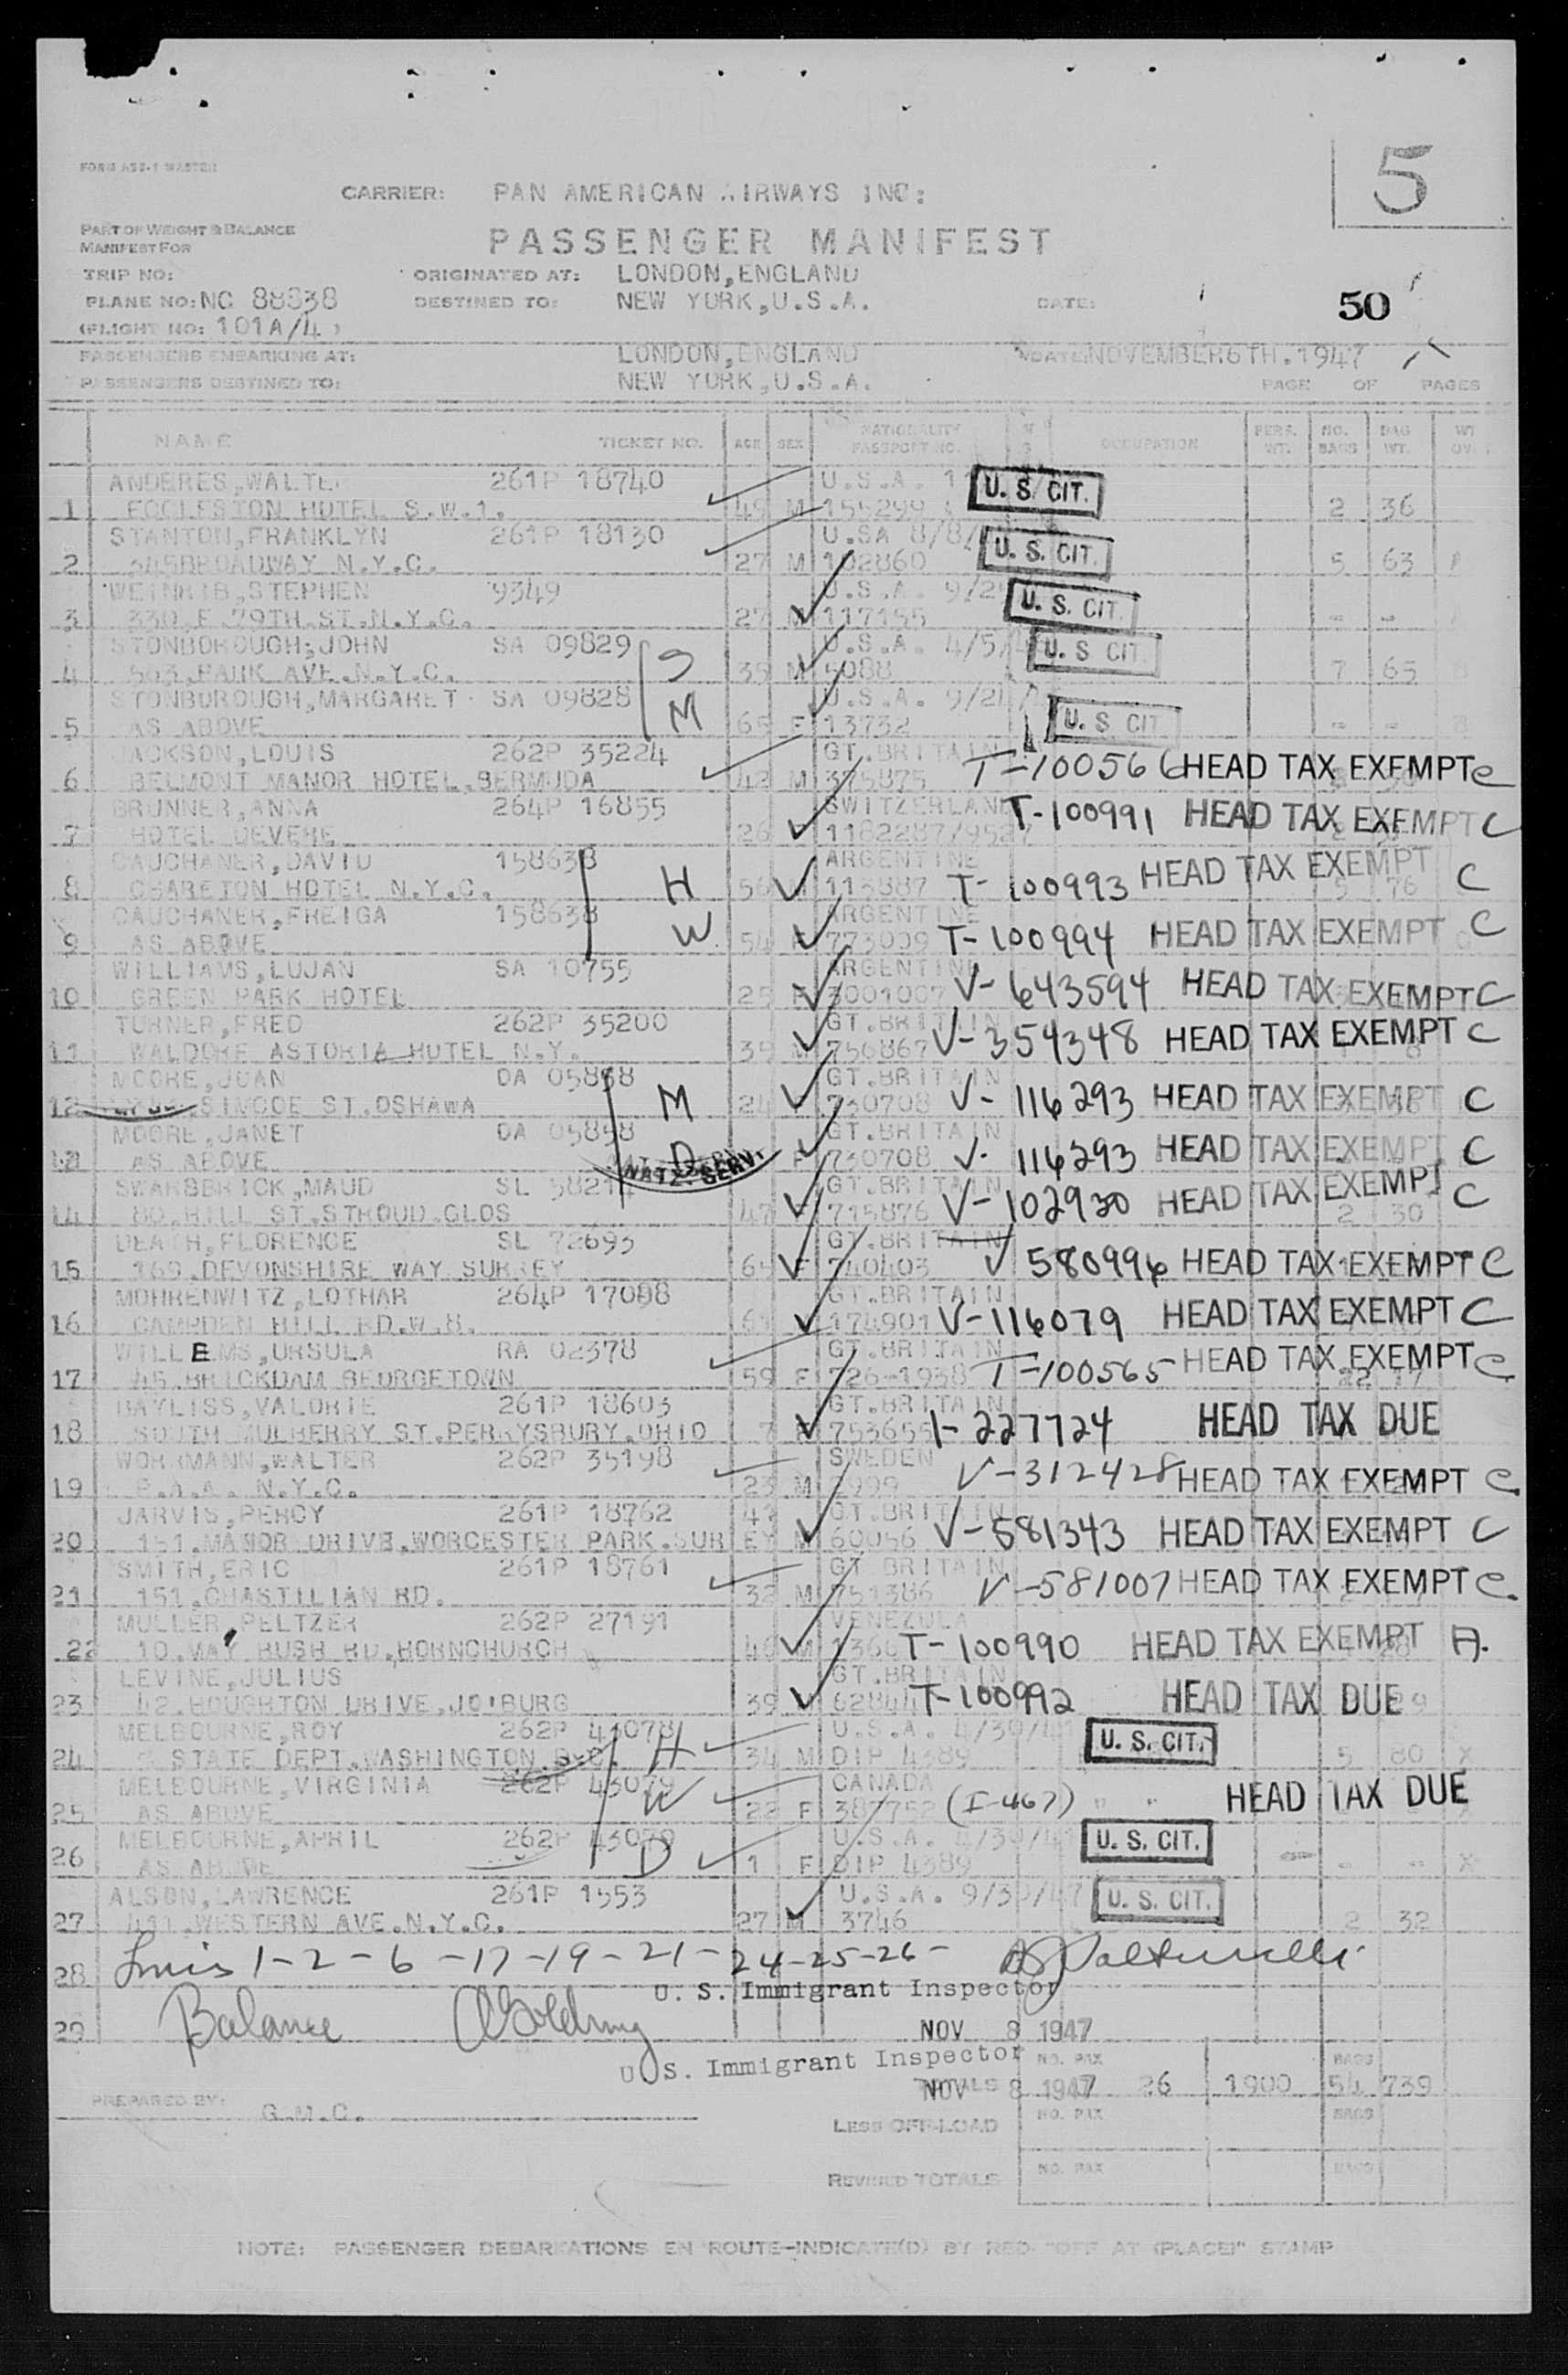 5
FORM ASS-1 MASTER
CARRIER: PAN AMERICAN AIRWAYS INC:
PART OF WEIGHT & BALANCE
MANIFEST FOR
PASSENGER MANIFEST
TRIP NO: ORIGINATED AT: LONDON,ENGLAND
PLANE NO: NC 88838 DESTINED TO: NEW YORK,U.S.A. DATE: 50
(FLIGHT NO: 101A/4)
PASSENGERS EMBARKING AT: LONDON,ENGLAND DATE: NOVEMBER 6TH. 1947
PASSENGERS DESTINED TO: NEW YORK,U.S.A. PAGE OF PAGES
NAME TICKET NO. AGE SEX NATIONALITY PASSPORT NO. OCCUPATION PERS. WT. NO. BAGS BAG WT.
ANDERES,WALTE 261P 18740 U.S.A. U.S. CIT.
1 ECCLESTON HOTEL S.W.1. 49 M 155299 2 36
STANTON,FRANKLYN 261P 18130 U.SA 8/8/ U.S. CIT.
2 BROADWAY N.Y.C. 27 M 102860 5 63
STEPHEN 9349 U.S.A. U.S. CIT.
3 330.E.79TH.ST.N.Y.C. 27 M 117155 - -
STONBOROUGH;JOHN SA 09829 S U.S.A. 4/5/ U.S CIT.
4 PARK AVE.N.Y.C. 35 M 5088 7 65
STONBUROUGH,MARGARET SA 09828 M U.S.A. U.S CIT
5 AS ABOVE 65 F 13732 - -
JACKSON,LOUIS 262P 35224 GT.BRITAIN T-100566 HEAD TAX EXEMPT C
6 BELMONT MANOR HOTEL.BERMUDA 42 M 375875
BRUNNER,ANNA 264P 16855 SWITZERLAND T-100991 HEAD TAX EXEMPT C
7 HOTEL DEVERE 26 F
CAUCHANER,DAVID 158638 ARGENTINE
8 HOTEL N.Y.C. H 56 M 113887 T-100993 HEAD TAX EXEMPT C 5 76
CAUCHANER,FREIGA 158638 ARGENTINE
9 AS ABOVE W 54 F 773009 T-100994 HEAD TAX EXEMPT C
WILLIAMS,LUJAN SA 10755 ARGENTINE
10 GREEN PARK HOTEL 25 F V-643594 HEAD TAX EXEMPT C
TURNER,FRED 262P 35200 GT.BRITAIN
11 WALDORE ASTORIA HOTEL N.Y. 35 M 756867 V-354348 HEAD TAX EXEMPT C
MOORE,JOAN OA 05858 GT.BRITAIN
12 SIMCOE ST.OSHAWA M 24 730708 V-116293 HEAD TAX EXEMPT C
MOORE,JANET OA 05858 GT.BRITAIN
13 AS ABOVE D NATZ. SERV. F 730708 V. 116293 HEAD TAX EXEMPT C
SWARBBRICK,MAUD SL GT.BRITAIN
14 80.HILL ST.STROUD.GLOS 47 F 715876 V-102930 HEAD TAX EXEMPT C 2 30
DEATH,FLORENCE SL 72693 GT.BRITAIN
15 169.DEVONSHIRE WAY SURREY 65 F 740403 V 580996 HEAD TAX EXEMPT C
MOHRENWITZ,LOTHAR 264P 17088 GT.BRITAIN
16 CAMPDEN HILL RD.W.8. 61 174901 V-116079 HEAD TAX EXEMPT C
WILLEMS,URSULA RA 02378 GT.BRITAIN
17 45.BRICKDAM GEORGETOWN 59 F 726-1938 T-100565 HEAD TAX EXEMPT C.
BAYLISS,VALORIE 261P 18603 GT.BRITAIN
18 SOUTH MULBERRY ST.PERRYSBURY.OHIO 7 F 753655 I-227724 HEAD TAX DUE
WOHRMANN,WALTER 262P 35198 SWEDEN
19 P.A.A. N.Y.C. 23 M 2999 V-312428 HEAD TAX EXEMPT C.
JARVIS,PERCY 261P 18762 47 GT.BRITAIN
20 151.MANOR DRIVE.WORCESTER PARK.SURREY M 60056 V-581343 HEAD TAX EXEMPT C
SMITH,ERIC 261P 18761 GT BRITAIN
21 151.CHASTILIAN RD. 32 M 751386 V-581007 HEAD TAX EXEMPT C.
MULLER,PELTZER 262P 27191 VENEZULA
22 10.MAY BUSH RD.HORNCHURCH 46 M T-100990 HEAD TAX EXEMPT A.
LEVINE,JULIUS GT.BRITAIN
23 42.HOUGHTON DRIVE.JO'BURG 39 M T-100992 HEAD TAX DUE
MELBOURNE,ROY 262P 43078 H U.S.A. 4/30/41 U.S. CIT.
24 STATE DEPT.WASHINGTON.D.C. 34 M DIP 4389 5 80 X
MELBOURNE,VIRGINIA 262P 43079 W CANADA
25 AS ABOVE 22 F 387752 (I-467) " " HEAD TAX DUE
MELBOURNE,APRIL 262P 43079 U.S.A. 4/30/41 U.S. CIT.
26 AS ABOVE D 1 F DIP 4389 - - X
ALSON,LAWRENCE 261P 1553 U.S.A. 9/30/47 U.S. CIT.
27 WESTERN AVE.N.Y.C. 27 M 3746 2 32
28 Lines 1-2-6-17-19-21-24-25-26-
U. S. Immigrant Inspector
29 Balance NOV 8 1947
U. S. Immigrant Inspector NO. PAX BAGS
NOV 8 1947 TOTALS 26 1900 54 739
PREPARED BY: G.M.C.
LESS OFF-LOAD NO. PAX BAGS
REVISED TOTALS NO. PAX BAGS
NOTE: PASSENGER DEBARKATIONS EN ROUTE-INDICATE(D) BY RED "OFF AT (PLACE)" STAMP